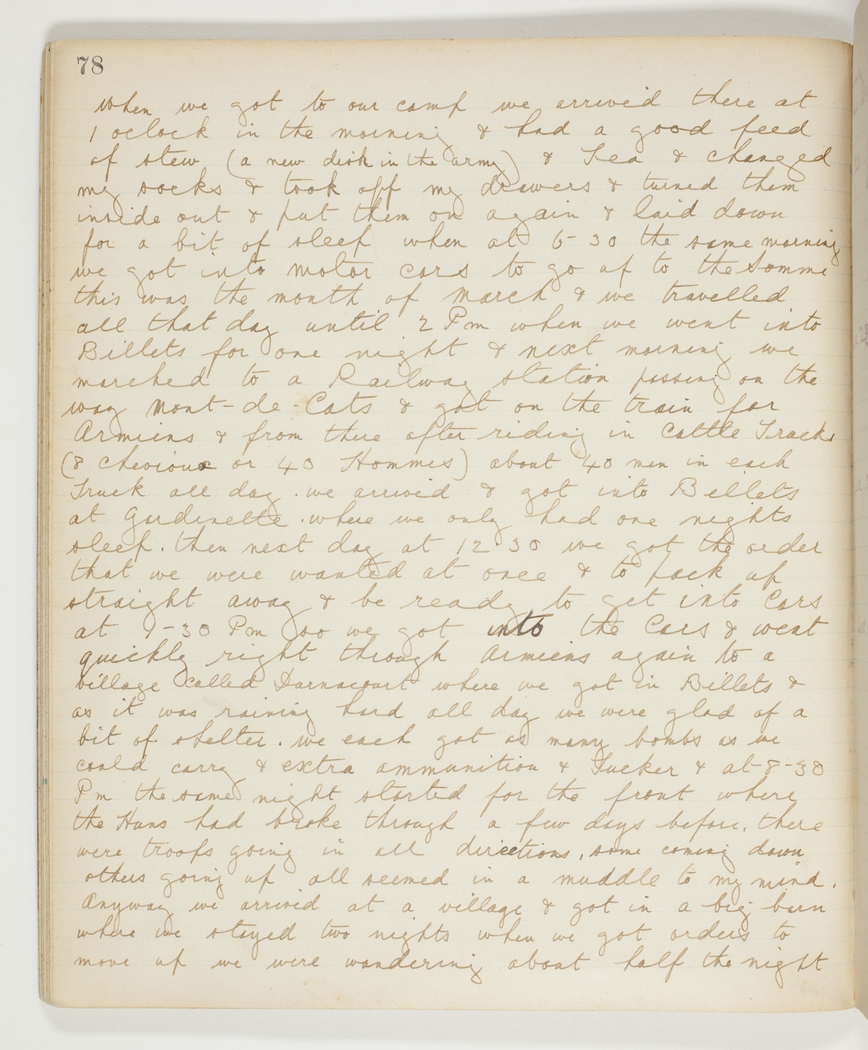 78
when we got to our camp we arrived there at
1 oclock in the morning & had a good feed
of stew (a new dish in the army) & Tea & changed
my socks & took off my drawers & turned them
inside out & put them on again & laid down
for a bit of sleep when at 6-30 the same morning
we got into motor cars to go up to the Somme
this was the month of March & we travelled
all that day until 2 Pm when we went into
Billets for one night & next morning we
marched to a Railway station passing on the
way Mont-de-Cats & got on the train for
Armiens & from there after riding in Cattle Trucks
(8 Chevioux or 40 Hommes) about 40 men in each
Truck all day. we arrived & got into Billets
at Gudinelle. where we only had one nights
sleep. then next day at 12.30 we got the order
that we were wanted at once & to pack up
straight away & be ready to get into Cars
at 1-30 Pm so we got into the Cars & went
quickly right through Armiens again to a
village called Darnacourt where we got in Billets &
as it was raining hard all day we were glad of a
bit of shelter. we each got as many bombs as we
could carry & extra ammunition & Tucker & at 8-30
Pm the same night started for the front where
the Huns had broke through a few days before. there
were troops going in all directions, some coming down
others going up all seemed in a muddle to my mind.
Anyway we arrived at a village & got in a big barn
where we stayed two nights when we got orders to
move up we were wandering about half the night